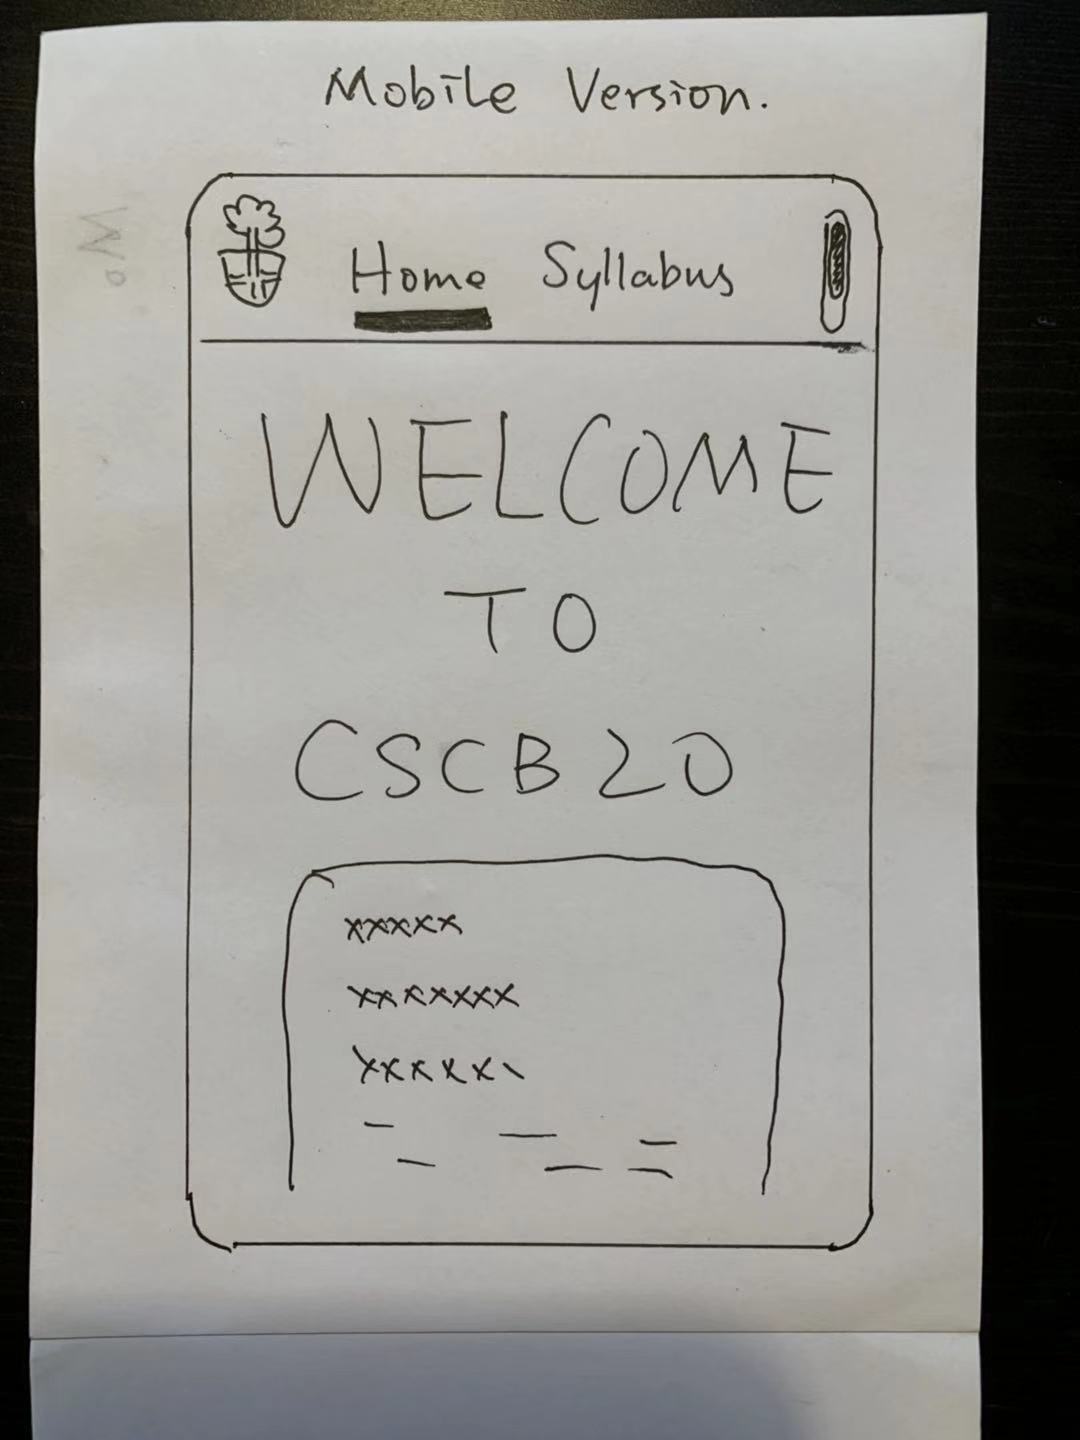 Mobile Version.
Home Syllabus
WELCOME
TO
CSCB20
xxxxx
xxxxxxx
xxxxx